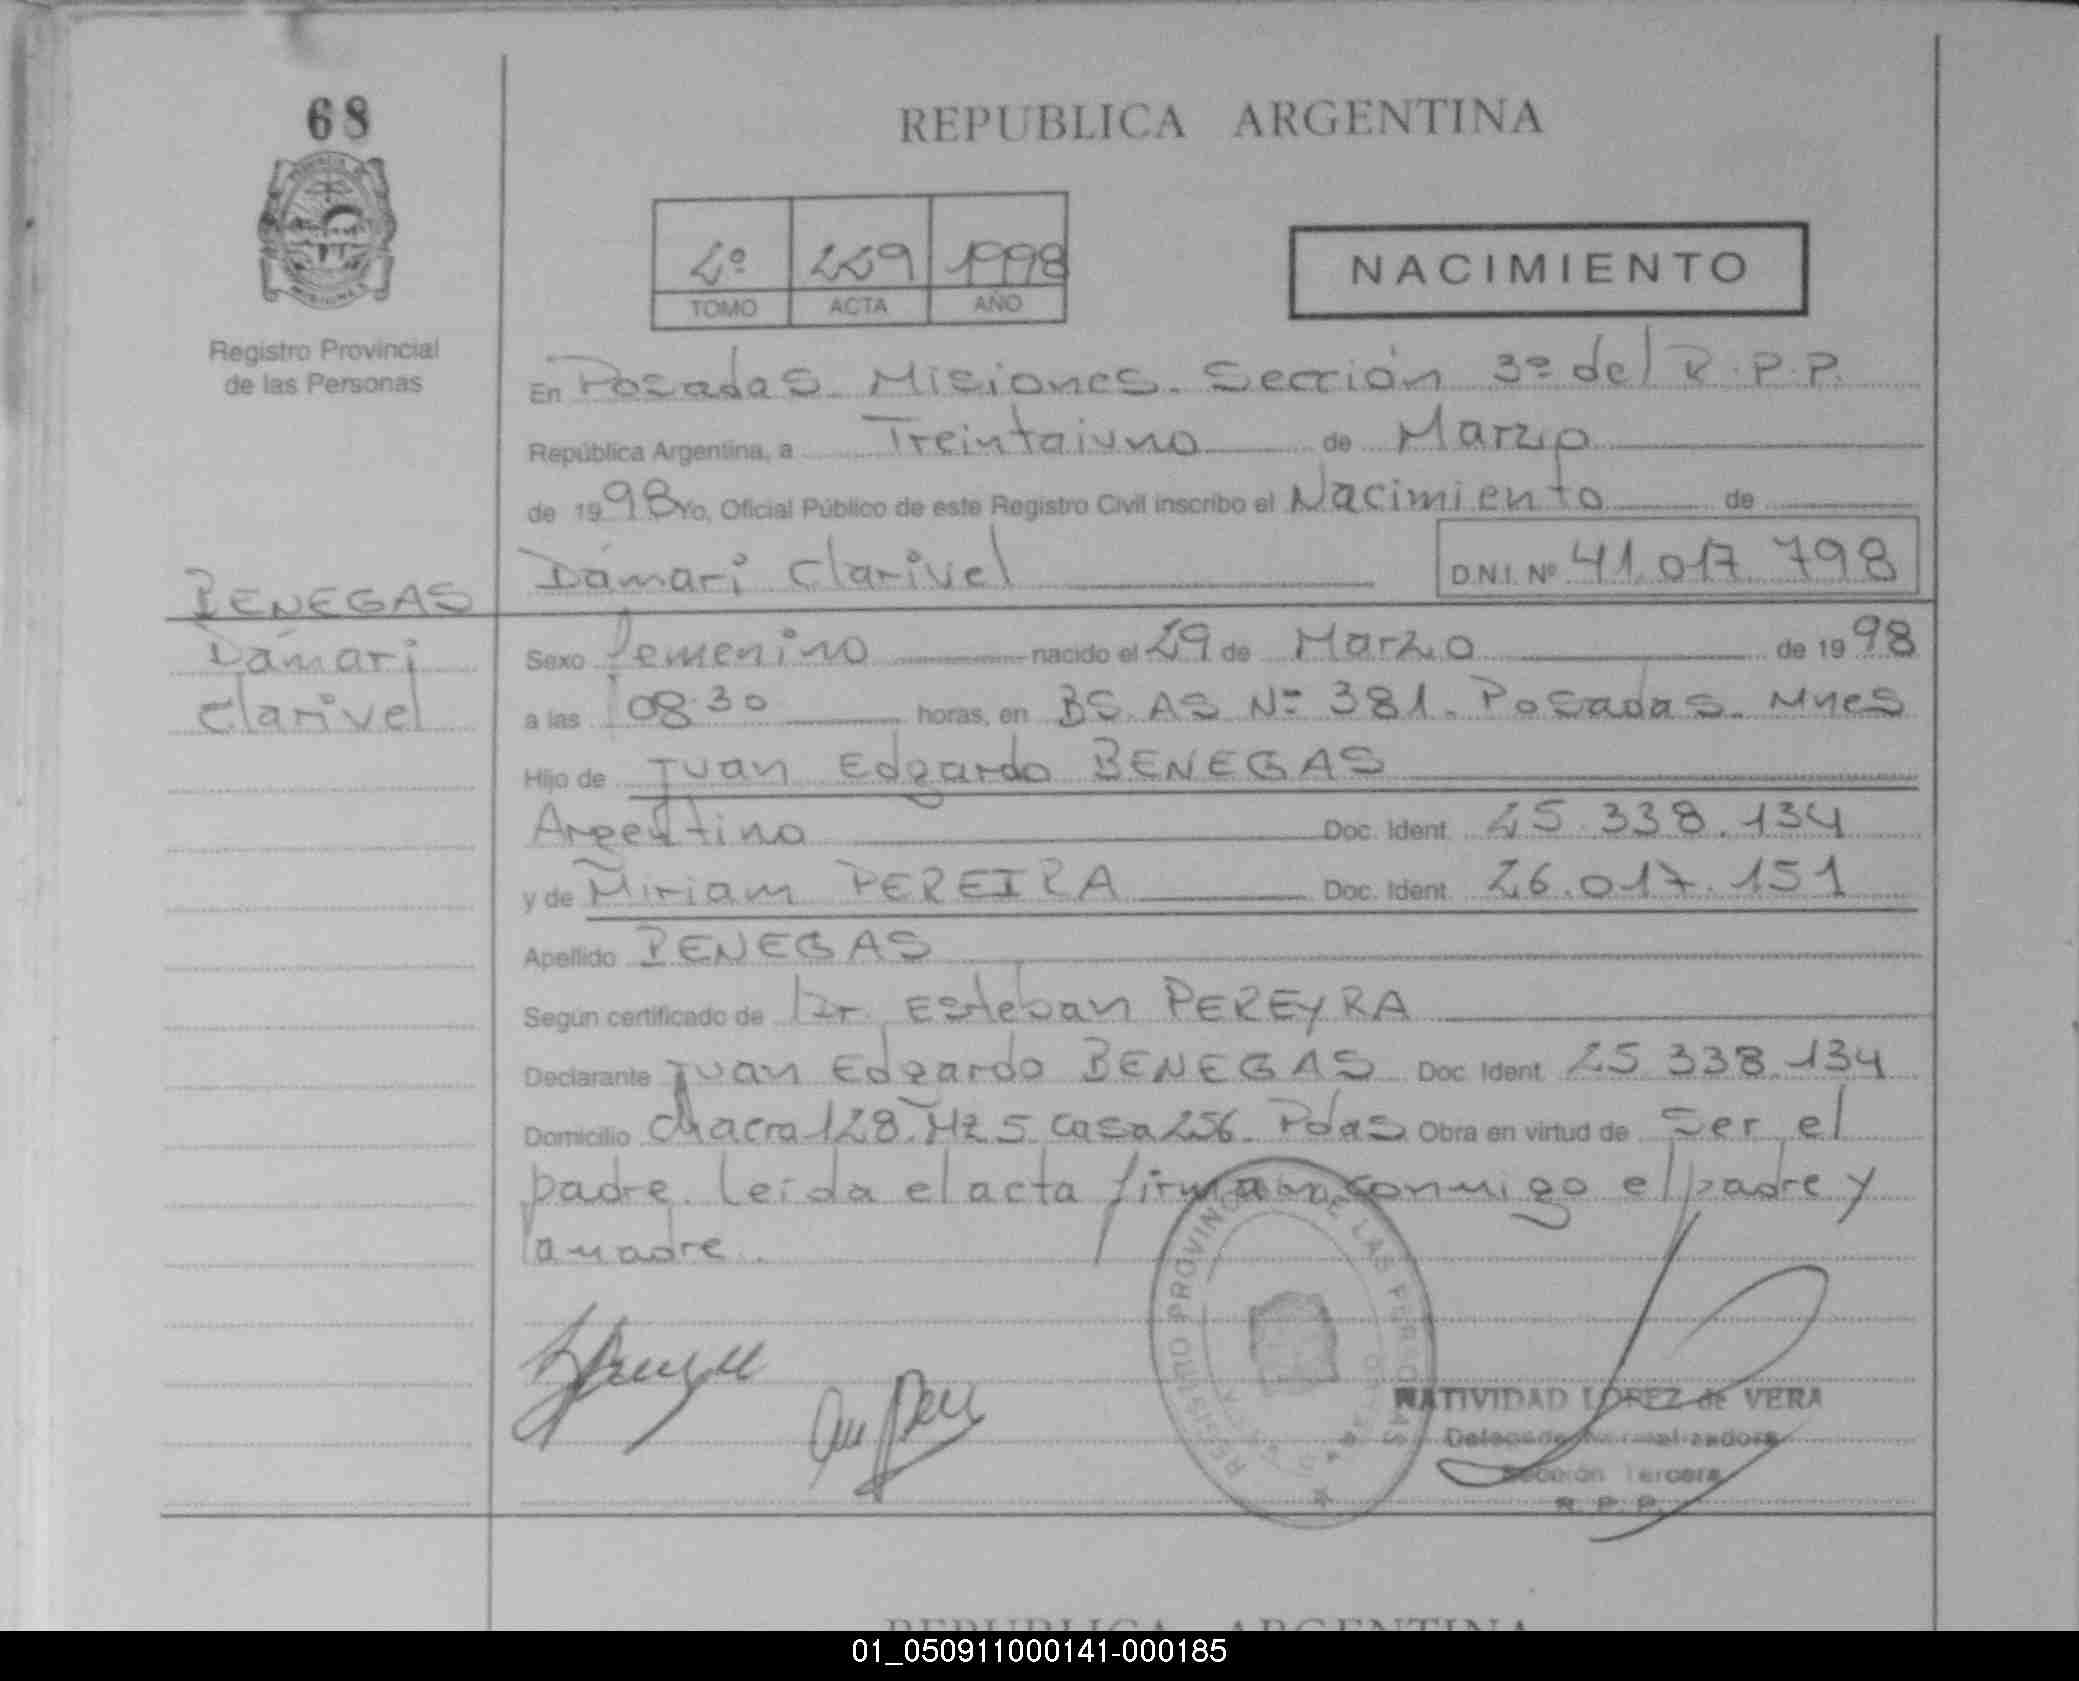 68
REPUBLICA ARGENTINA
2º 229 1998
TOMO ACTA AÑO
NACIMIENTO
Registro Provincial
de las Personas
En Posadas. Misiones. Sección 3º del R.P.P.
República Argentina, a Treintaiuno de Marzo
de 1998 Yo, Oficial Público de este Registro Civil inscribo el Nacimiento de
Dámari Clarivel D.N.I. Nº 41.017.798
BENEGAS
Dámari
Clarivel
Sexo femenino nacido el 29 de Marzo de 1998
a las 08.30 horas, en BS.AS Nº 381. Posadas. Mnes
Hijo de Juan Edgardo BENEGAS
Argentino Doc. Ident. 25.338.134
y de Miriam PEREIRA Doc. Ident. 26.017.151
Apellido BENEGAS
Según certificado de Dr. Esteban PEREYRA
Declarante Juan Edgardo BENEGAS Doc. Ident. 25.338.134
Domicilio Chacra 128. Mz 5 casa 256. Pdas Obra en virtud de ser el
padre. leída el acta firman conmigo el padre y
la madre.
REGISTRO PROVINCIAL DE LAS PERSONAS
NATIVIDAD LOPEZ de VERA
Sección Tercera
R. P. P.
REPUBLICA ARGENTINA
01_050911000141-000185